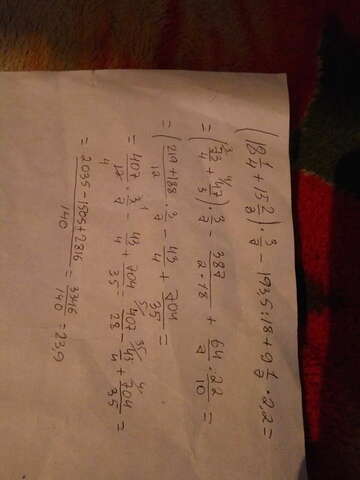 (18 1/4 + 15 2/3) · 3/7 - 193,5 : 18 + 9 1/7 · 2,2 =
= (73/4 + 47/3) · 3/7 - 387/2·18 + 64/7 · 22/10 =
= (219+188/12 · 3/7 - 43/4 + 704/35 =
= 407/12 · 3/7 - 43/4 + 704/35 = 407/28 - 43/4 + 704/35 =
= 2035 - 1505 + 2816/140 = 3346/140 = 23,9